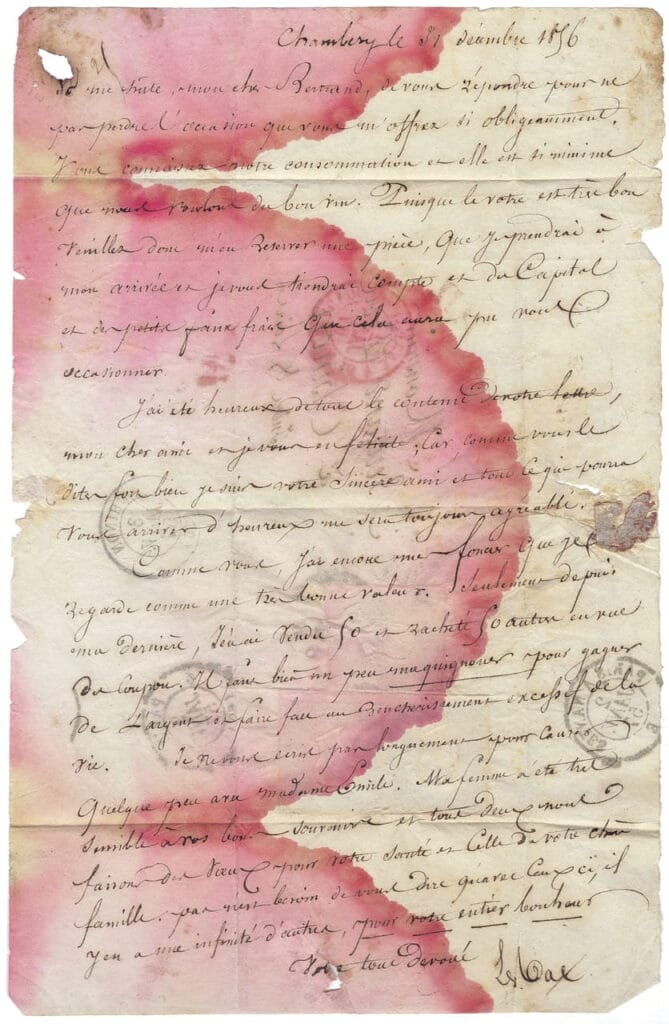 Chambery le 31 décembre 1856
Je me hâte, mon cher Bertrand, de vous répondre pour ne
pas perdre l'occasion que vous m'offrez si obligeamment.
Vous connaissez notre consommation et elle est si minime
que nous voulons du bon vin. Puisque le votre est très bon
veuillez donc m'en reserver une pièce, que je prendrai à
mon arrivée et je vous tiendrai compte et du Capital
et des petits faux frais que cela aura pu vous
occasionner.
J'ai été heureux de tout le contenu de votre lettre,
mon cher ami et je vous en félicite; Car, comme vous le
dites fort bien je suis votre Sincère ami et tout ce qui pourra
vous arriver d'heureux me sera toujours agréable.
Comme vous, j'ai encore me que je
regarde comme une très bonne valeur. Seulement depuis
ma dernière, j'en ai vendu 50 et racheté 50 autres en vue
du Coupon. Il faut bien un peu maquignoner pour gagner
de L'argent et faire face au Rencherissement excessif de la
vie. Je ne vous écris pas longuement pour causer
quelque peu a madame Emile. Ma femme a été très
sensible à vos bons souvenirs et tous deux nous
faisons des Vœux pour votre santé et Celle de votre chère
famille, pas n'est besoin de vous dire qu'avec Ceux ci, il
y en a une infinité d'autres, pour votre entier bonheur
Votre tout dévoué